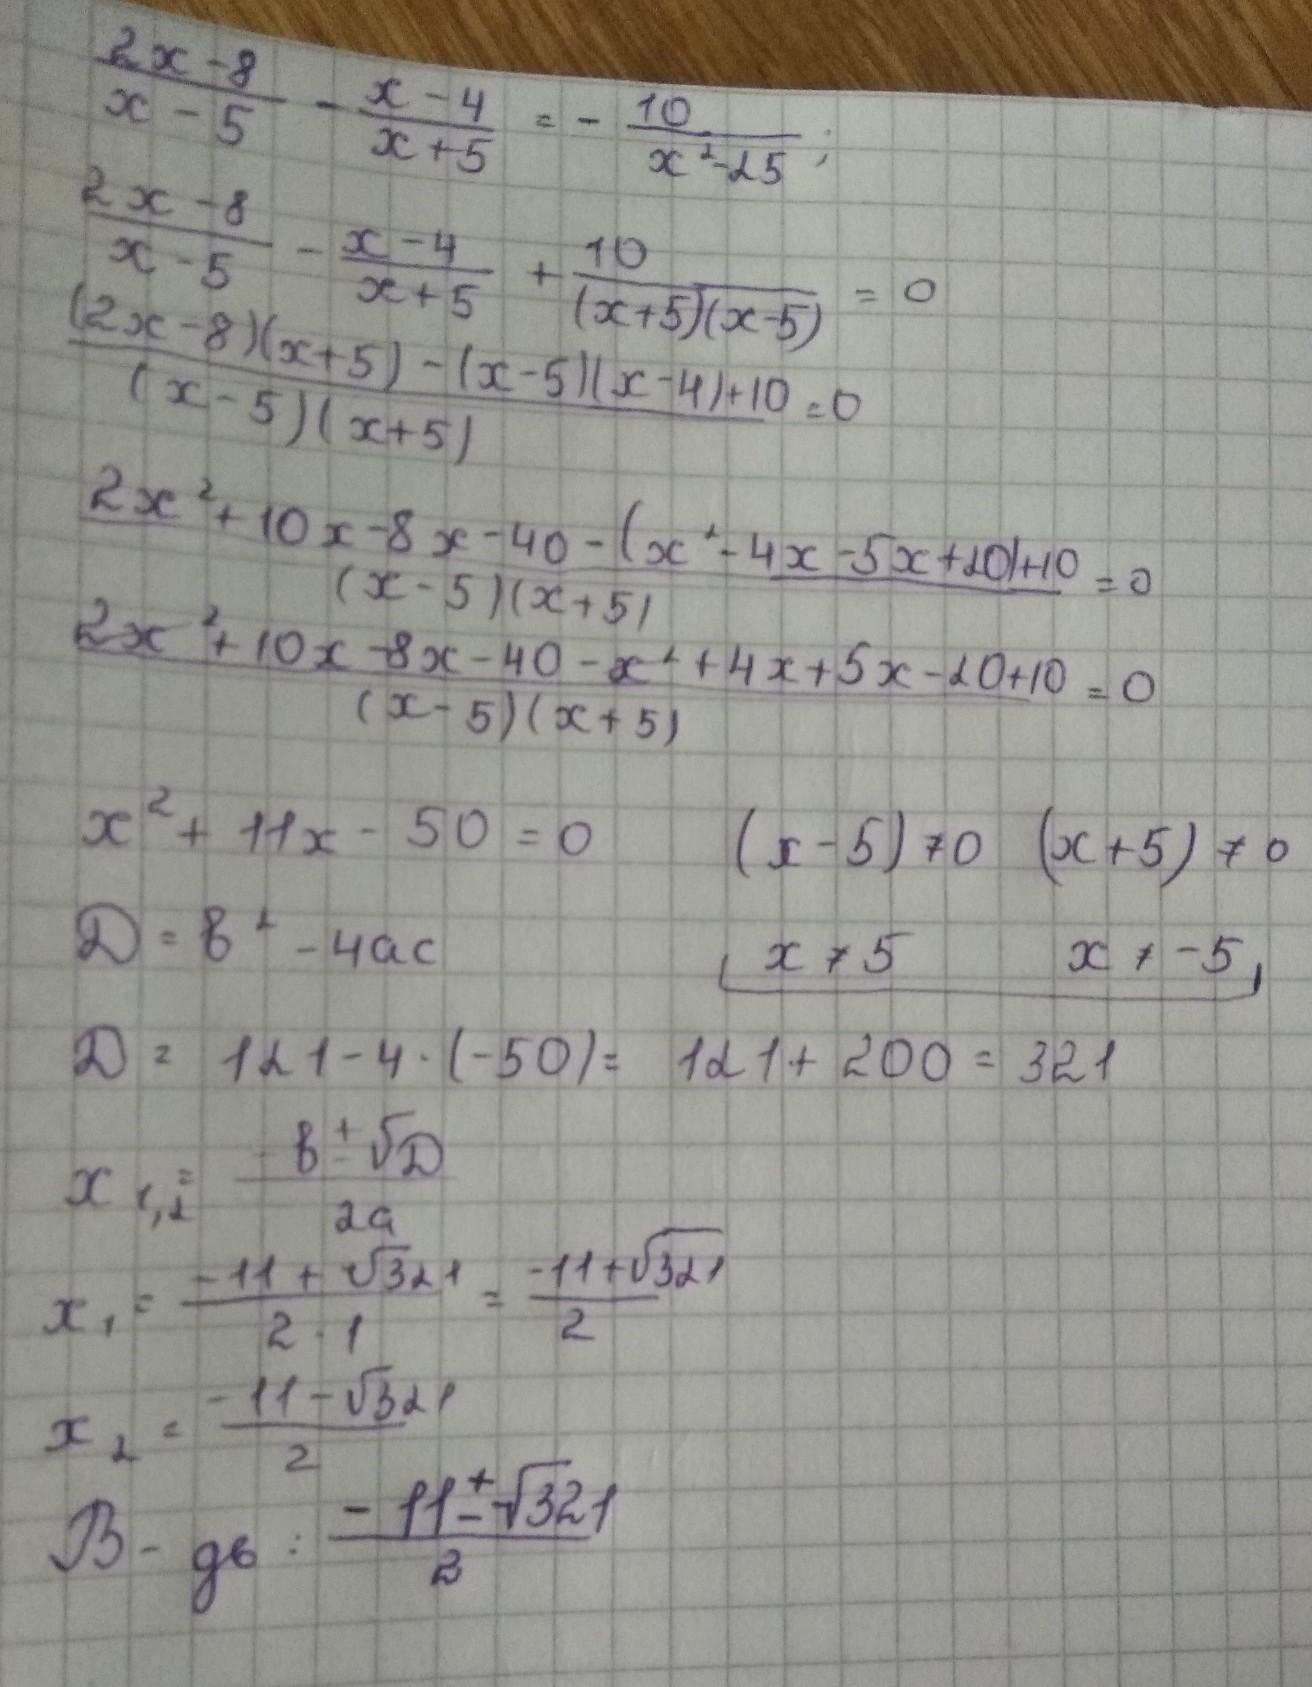 (2x-8)/(x-5) - (x-4)/(x+5) = - 10/(x²-25);
(2x-8)/(x-5) - (x-4)/(x+5) + 10/((x+5)(x-5)) = 0
((2x-8)(x+5)-(x-5)(x-4)+10)/((x-5)(x+5)) = 0
(2x²+10x-8x-40-(x²-4x-5x+20)+10)/((x-5)(x+5)) = 0
(2x²+10x-8x-40-x²+4x+5x-20+10)/((x-5)(x+5)) = 0
x²+11x-50=0 (x-5)≠0 (x+5)≠0
D=b²-4ac x≠5 x≠-5
D = 121-4·(-50)= 121+200=321
x₁,₂= (-b±√D)/(2a)
x₁ = (-11+√321)/(2·1) = (-11+√321)/2
x₂ = (-11-√321)/2
В-дь: (-11±√321)/2